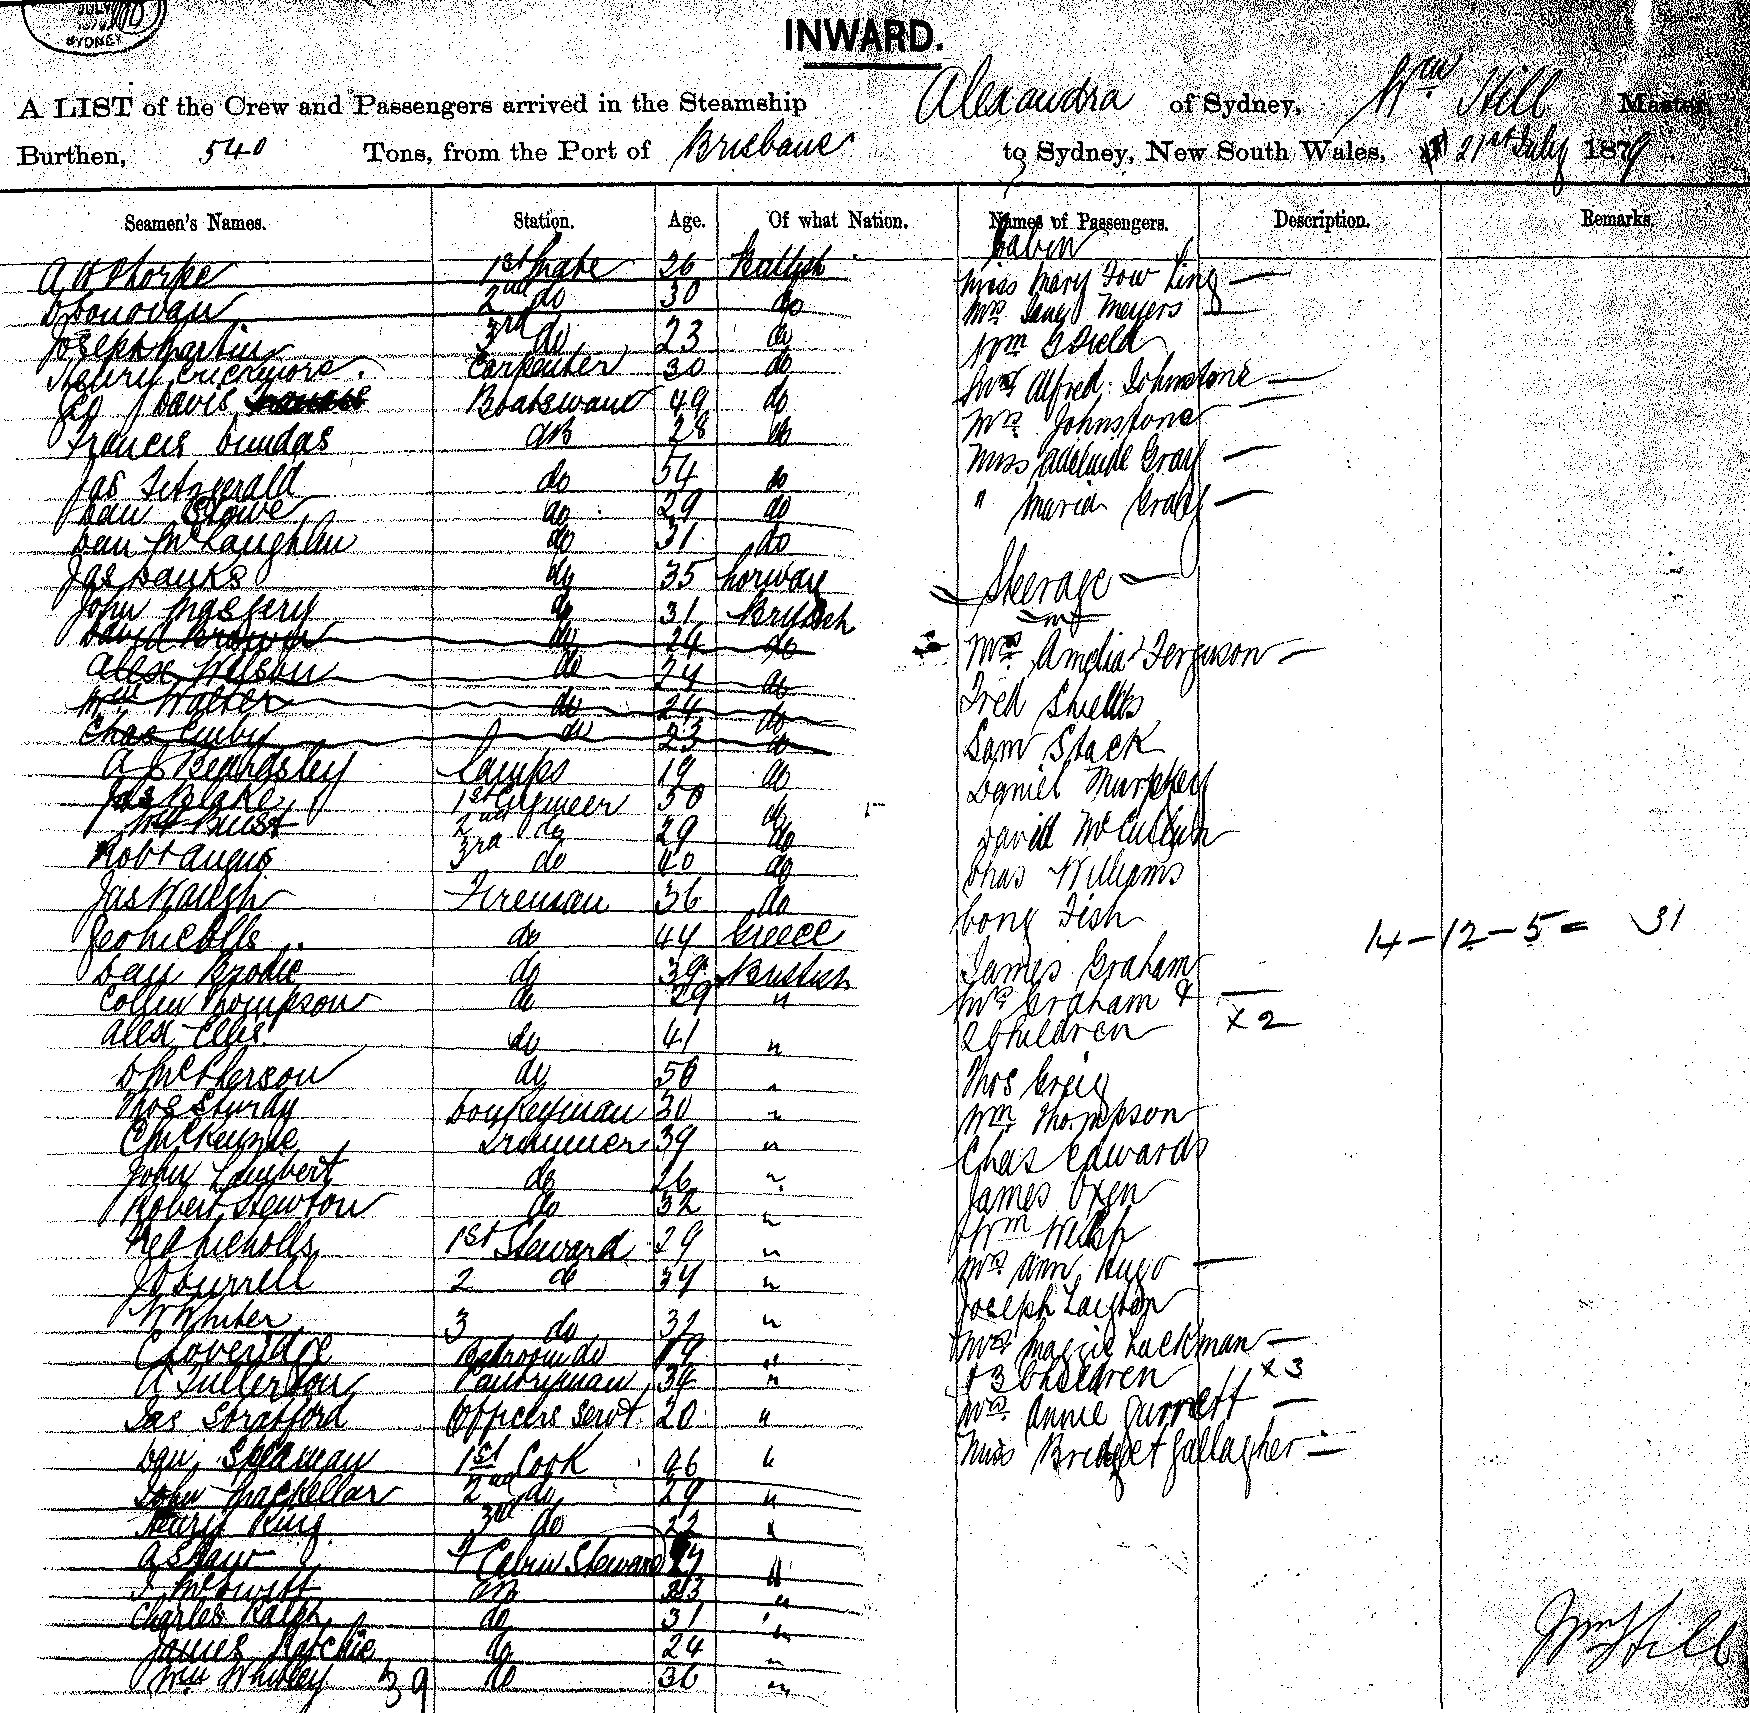 SYDNEY
INWARD.
A LIST of the Crew and Passengers arrived in the Steamship Alexandra of Sydney, Wm Hill Master
Burthen, 540 Tons, from the Port of Brisbane to Sydney, New South Wales, 21st July 1879
Seamen's Names. Station. Age. Of what Nation. Names of Passengers. Description. Remarks.
Cabin
A W Thorpe 1st Mate 26 British
D Donovan 2nd do 30 do
Joseph Martin 3rd do 23 do
Henry Crickmore Carpenter 30 do
Geo Davis Boatswain 49 do
Francis Dundas AB 28 do
Jas Fitzgerald do 54 do
Dan Stowe do 29 do
Dan McLaughlin do 31 do
Jas Danks do 35 Norway
John do 31 British
David Brower do 24 do
Alex Wilson do 24 do
Wm Walter do 24 do
Chas do 23 do
A J Beardsley Lamps 19 do
Jas Blake 1st Engineer 50 do
Wm Brust 2nd do 29 do
Robt Angus 3rd do 40 do
Jas Waugh Fireman 36 do
Geo Nicholls do 44 Greece
Dan Brodie do 39 British
Collin Thompson do 29 "
Alex Ellis do 41 "
D McPherson do 50 "
Thos Sturdy Donkeyman 30 "
C McKenzie Trimmer 39 "
John Lambert do 26 "
Robert Newton do 32 "
Nicholls 1st Steward 29 "
J Durrell 2 do 34 "
W Whiter 3 do 32 "
C Loveridge Bedroom do 19 "
A Fullerton Pantryman 34 "
Jas Stratford Officers Servt 20 "
Dan Spearman 1st Cook 46 "
John Mackellar 2nd do 29 "
Henry King 3rd do 22 "
A Shaw F Cabin Steward "
J McSwift AB 23 "
Charles Ralph do 31 "
James Ratchie do 24 "
Wm Whitley 39 do 36 "
Miss Mary Tow Ling —
Mrs Jane Meyers —
Wm Gould
Mr Alfred Johnstone —
Mrs Johnstone —
Miss Adelaide Gray —
" Maria Gray —
Steerage —
Mrs Amelia Ferguson —
Fred Shields
Sam Stack
Daniel Murphey
David McCullum
Chas Williams
Cong Fish
James Graham
Mrs Graham & —
2 Children x 2
Thos Greig
Wm Thompson
Chas Edwards
James Oxen
Wm Welsh
Mrs Ann Hugo —
Joseph Layton
Mrs Maggie Luckman —
& 3 Children x 3
Mrs Annie Garrett —
Miss Bridget Gallagher —
14 - 12 - 5 = 31
Wm Hill